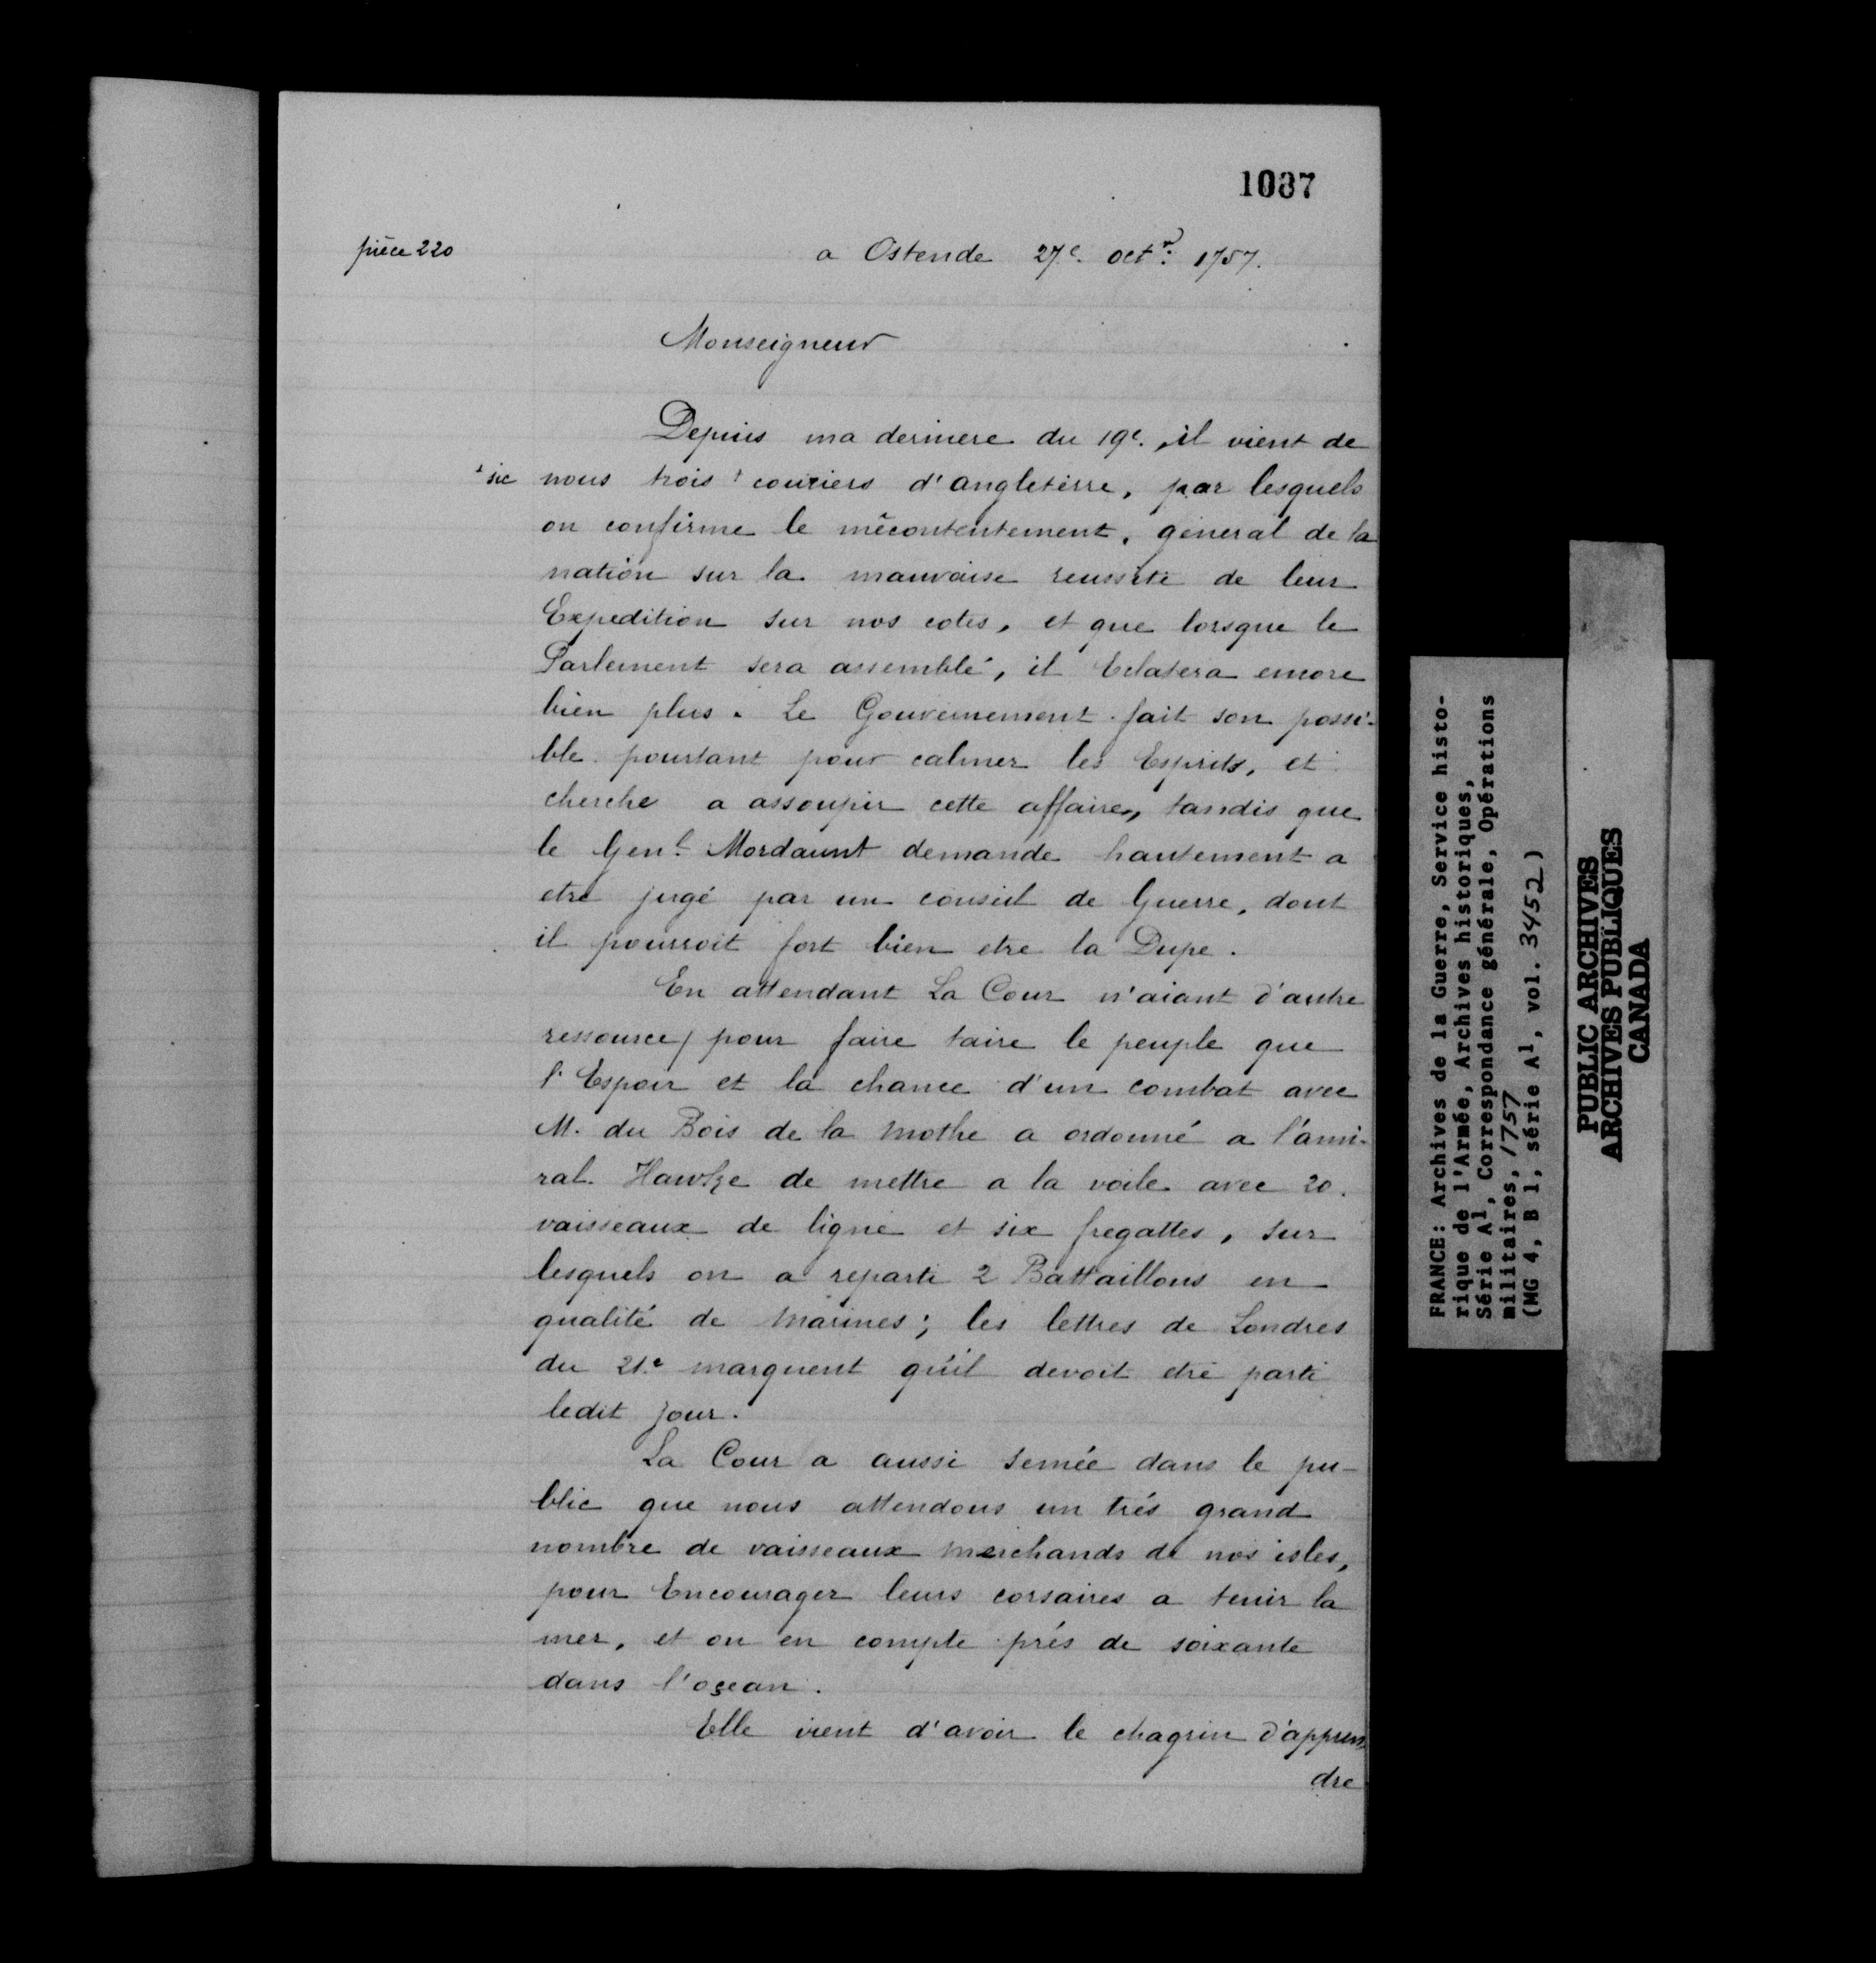 1087
pièce 220
a Ostende 27e. octr: 1757.
Monseigneur
Depuis ma derniere du 19e., il vient de
+ sic nous trois + couriers d'angleterre, par lesquels
on confirme le mécontentement, général de la
nation sur la mauvaise reussite de leur
Expedition sur nos cotes, et que lorsque le
Parlement sera assemblé, il Eclatera encore
bien plus. Le Gouvernement fait son possi-
ble pourtant pour calmer les Esprits, et
cherche a assoupir cette affaire, tandis que
le Genl. Mordaunt demande hautement a
etre jugé par un conseil de Guerre, dont
il pourroit fort bien etre la Dupe.
En attendant La Cour n'aiant d'autre
ressource, pour faire taire le peuple que
l'Espoir et la chance d'un combat avec
M. du Bois de la Mothe a ordonné a l'ami-
ral Hawke de mettre a la voile avec 20.
vaisseaux de ligne et six fregattes, sur
lesquels on a reparti 2 Battaillons en
qualité de Marines; les lettres de Londres
du 21.e marquent qu'il devoit etre parti
ledit jour.
La Cour a aussi semée dans le pu-
blic que nous attendons un trés grand
nombre de vaisseaux merchands de nos isles,
pour Encourager leurs corsaires a tenir la
mer, et on en compte prés de soixante
dans l'oçean.
Elle vient d'avoir le chagrin d'appren-
dre
FRANCE: Archives de la Guerre, Service histo-
rique de l'Armée, Archives historiques,
Série A1, Correspondance générale, Opérations
militaires, 1757
(MG 4, B 1, série A1, vol. 3452)
PUBLIC ARCHIVES
ARCHIVES PUBLIQUES
CANADA